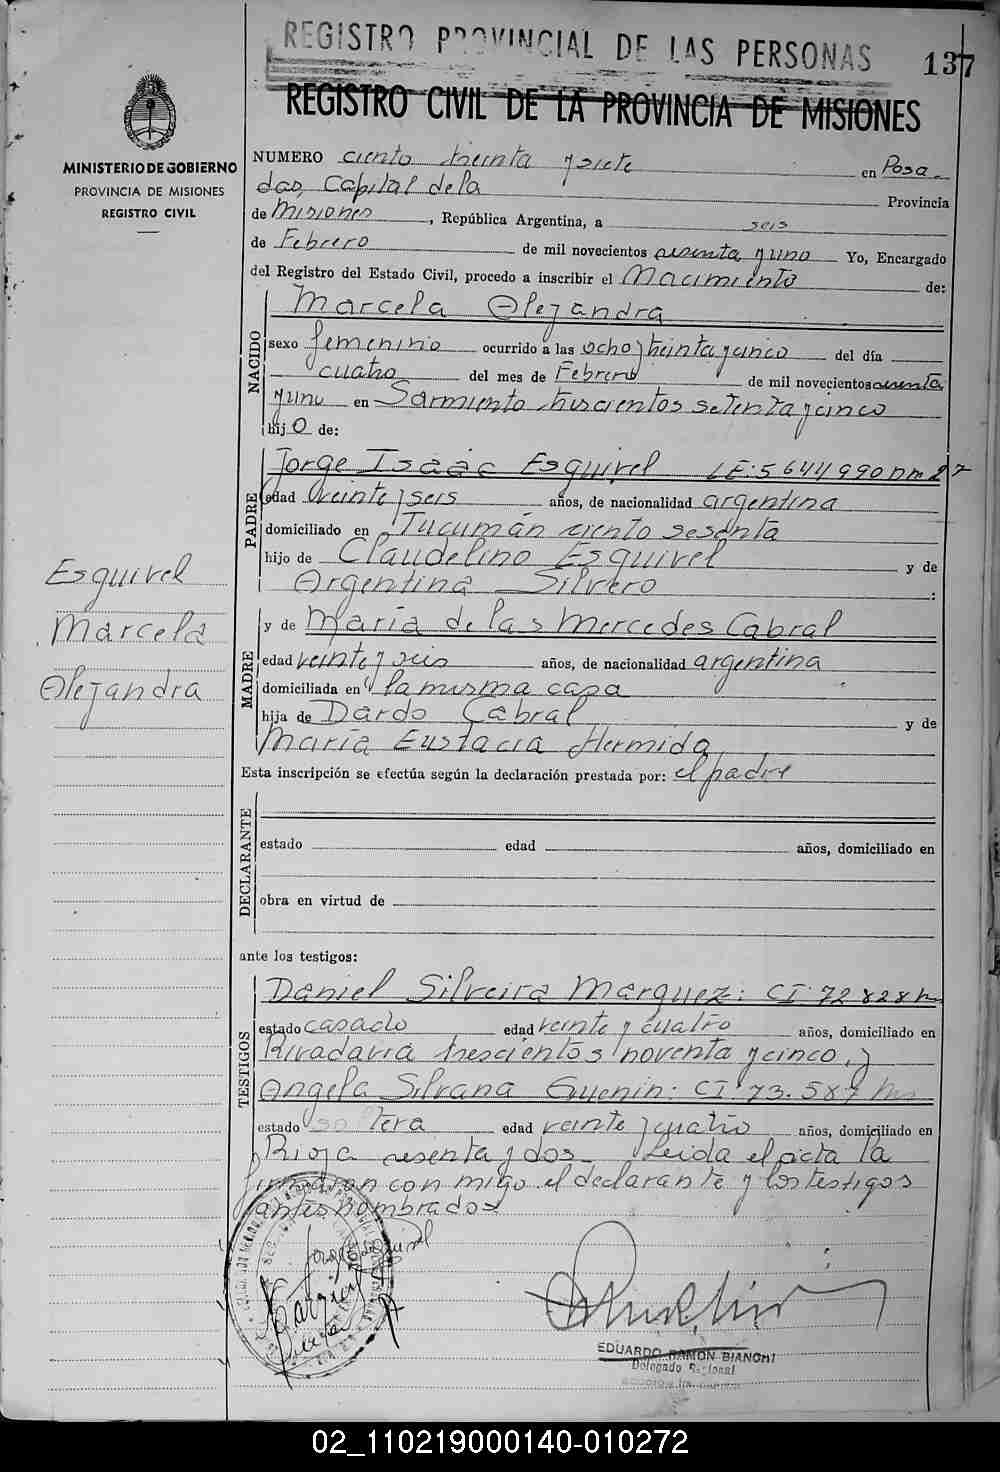 REGISTRO PROVINCIAL DE LAS PERSONAS
137
REGISTRO CIVIL DE LA PROVINCIA DE MISIONES
MINISTERIO DE GOBIERNO
PROVINCIA DE MISIONES
REGISTRO CIVIL
NUMERO ciento treinta y siete en Posa-
das, Capital de la Provincia
de Misiones, República Argentina, a seis
de Febrero de mil novecientos sesenta y uno Yo, Encargado
del Registro del Estado Civil, procedo a inscribir el Nacimiento de:
NACIDO
Marcela Alejandra
sexo femenino ocurrido a las ocho y treinta y cinco del día
cuatro del mes de Febrero de mil novecientos sesenta
y uno en Sarmiento trescientos setenta y cinco
hijo de:
PADRE
Jorge Isaac Esquivel LE: 5644990 DM 27
edad veinte y seis años, de nacionalidad argentina
domiciliado en Tucumán ciento sesenta
hijo de Claudelino Esquivel y de
Argentina Silvero :
MADRE
y de María de las Mercedes Cabral
edad veinte y seis años, de nacionalidad argentina
domiciliada en la misma casa
hija de Dardo Cabral y de
María Eustacia Hermida
Esta inscripción se efectúa según la declaración prestada por: el padre
DECLARANTE
estado edad años, domiciliado en
obra en virtud de
ante los testigos:
TESTIGOS
Daniel Silveira Marquez: CI: 72828
estado casado edad veinte y cuatro años, domiciliado en
Rivadavia trescientos noventa y cinco, y
Angela Silvana Guenin: CI. 73.587
estado soltera edad veinte y cuatro años, domiciliado en
Rioja sesenta y dos- Leida el acta la
firmaron con migo el declarante y los testigos
antes nombrados
Esquivel
Marcela
Alejandra
EDUARDO RAMON BIANCHI
Delegado Regional
02_110219000140-010272